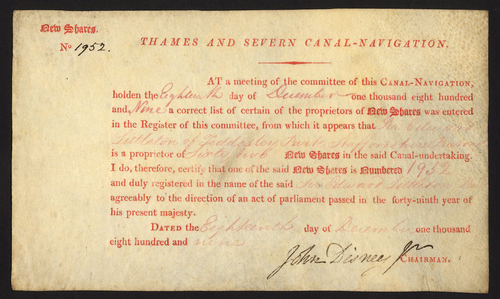 New Shares.
No 1952.
THAMES AND SEVERN CANAL-NAVIGATION.
AT a meeting of the committee of this CANAL-NAVIGATION,
holden the Eighteenth day of December one thousand eight hundred
and Nine a correct list of certain of the proprietors of New Shares was entered
in the Register of this committee, from which it appears that Sir Edward
Littleton of
is a proprietor of Sixty two New Shares in the said Canal-undertaking.
I do, therefore, certify that one of the said New Shares is Numbered 1952
and duly registered in the name of the said Sir Edward Littleton
agreeably to the direction of an act of parliament passed in the forty-ninth year of
his present majesty.
DATED the Eighteenth day of December one thousand
eight hundred and nine
John Disney Jr
CHAIRMAN.